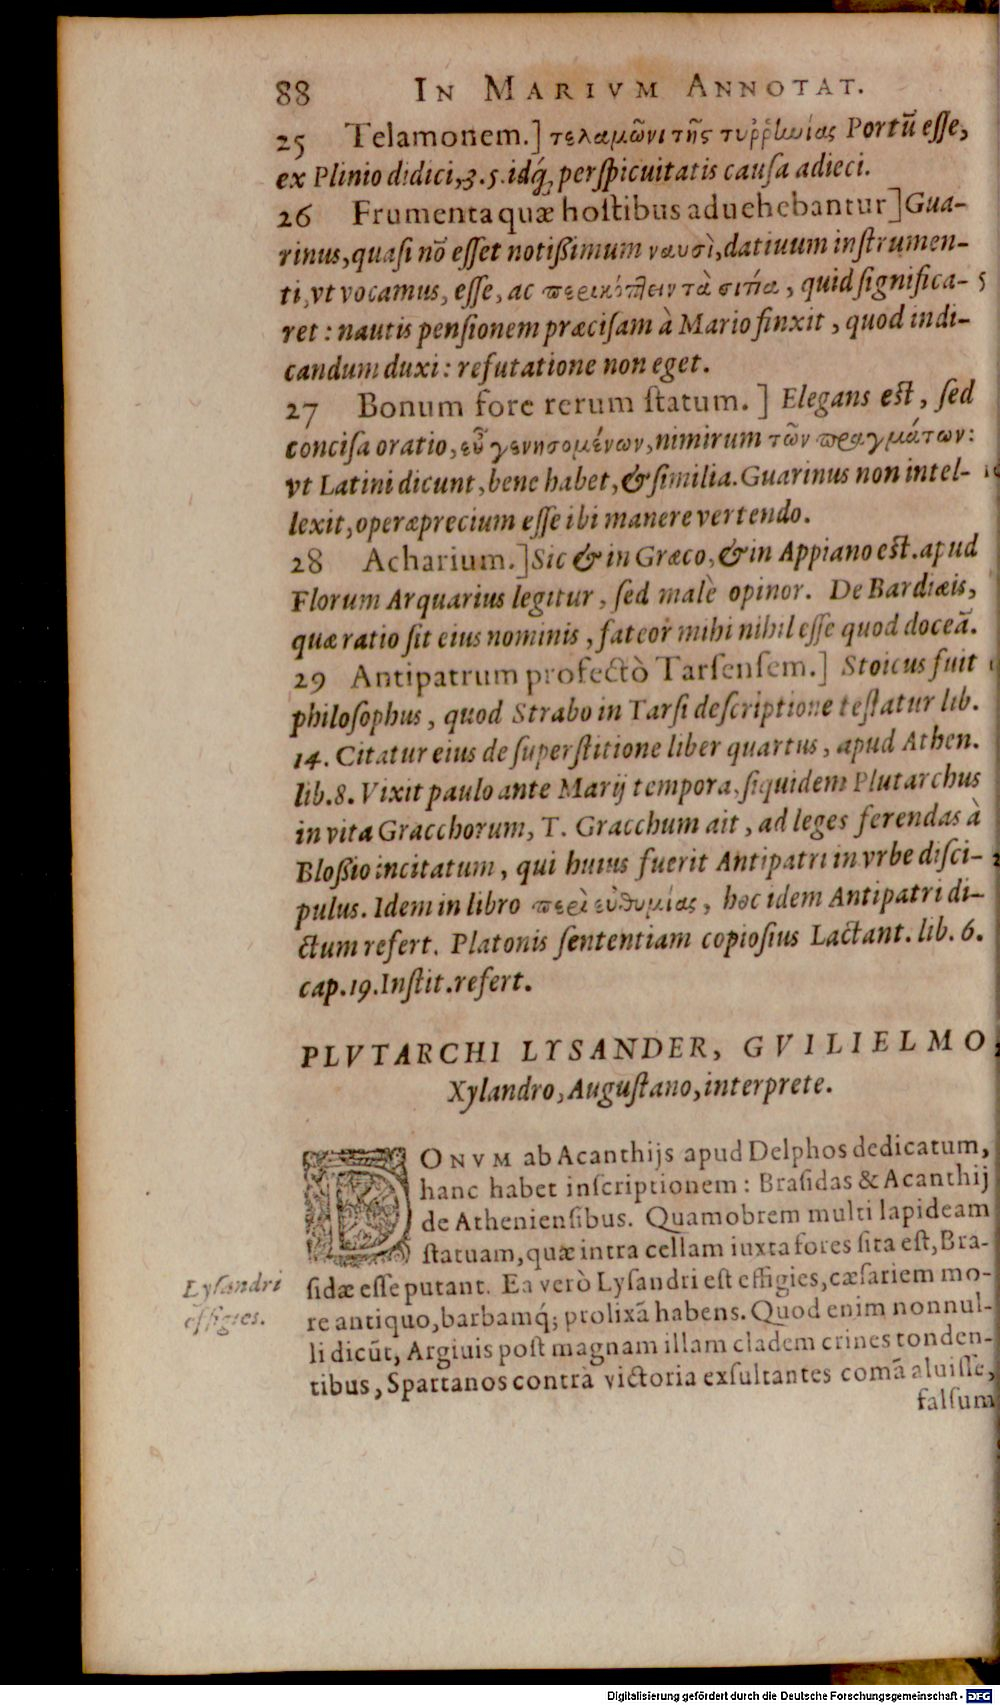 88 IN MARIVM ANNOTAT.
25 Telamonem.] τελαμῶνι τῆς τυῤῥηνίας Portũ eſſe,
ex Plinio didici, 3. 5. idq́; perſpicuitatis cauſa adieci.
26 Frumenta quæ hoſtibus aduehebantur] Gua-
rinus, quaſi nõ eſſet notißimum ναυσὶ, datiuum inſtrumen-
ti, vt vocamus, eſſe, ac περικόπτειν τὰ σιτία, quid ſignifica- 5
ret: nautis penſionem præciſam à Mario finxit, quod indi-
candum duxi: refutatione non eget.
27 Bonum fore rerum ſtatum.] Elegans eſt, ſed
conciſa oratio, εὖ γενησομένων, nimirum τῶν πραγμάτων:
vt Latini dicunt, bene habet, & ſimilia. Guarinus non intel-
lexit, operæprecium eſſe ibi manere vertendo.
28 Acharium.] Sic & in Græco, & in Appiano eſt. apud
Florum Arquarius legitur, ſed malè opinor. De Bardiæis,
quæ ratio ſit eius nominis, fateor mihi nihil eſſe quod doceã.
29 Antipatrum profectò Tarſenſem.] Stoicus fuit
philoſophus, quod Strabo in Tarſi deſcriptione teſtatur lib.
14. Citatur eius de ſuperſtitione liber quartus, apud Athen.
lib. 8. Vixit paulo ante Marij tempora, ſiquidem Plutarchus
in vita Gracchorum, T. Gracchum ait, ad leges ferendas à
Bloßio incitatum, qui huius fuerit Antipatri in vrbe diſci-
pulus. Idem in libro περὶ εὐθυμίας, hoc idem Antipatri di-
ctum refert. Platonis ſententiam copioſius Lactant. lib. 6.
cap. 19. Inſtit. refert.
PLVTARCHI LYSANDER, GVILIELMO
Xylandro, Auguſtano, interprete.
DONVM ab Acanthijs apud Delphos dedicatum,
hanc habet inſcriptionem: Braſidas & Acanthij
de Athenienſibus. Quamobrem multi lapideam
ſtatuam, quæ intra cellam iuxta fores ſita eſt, Bra-
Lyſandri
effigies.
ſidæ eſſe putant. Ea verò Lyſandri eſt effigies, cæſariem mo-
re antiquo, barbamq́; prolixã habens. Quod enim nonnul-
li dicũt, Argiuis poſt magnam illam cladem crines tonden-
tibus, Spartanos contrà victoria exſultantes comã aluiſſe,
falſum
Digitalisierung gefördert durch die Deutsche Forschungsgemeinschaft - DFG